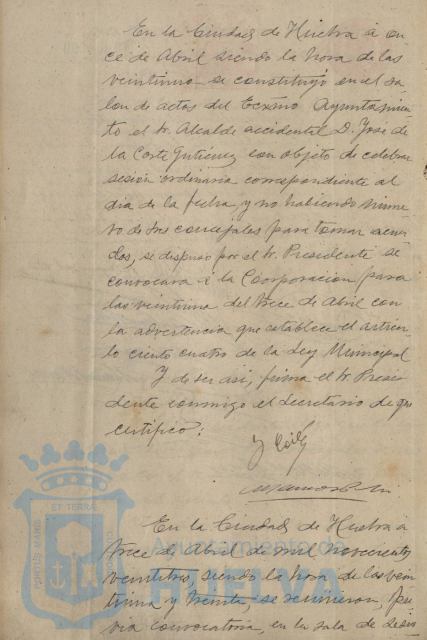 En la Ciudad de Huelva á on
ce de Abril siendo la hora de las
veintiuna se constituyó en el sa
lon de actos del Excmo Ayuntamien
to el Sr. Alcalde accidental D. José de
la Corte Gutiérrez con objeto de celebrar
sesión ordinaria correspondiente al
día de la fecha, y no habiendo núme
ro de Sres concejales para tomar acuer
dos, se dispuso por el Sr. Presidente se
convocara á la Corporación para
las veintiuna del trece de Abril con
la advertencia que establece el artícu
lo ciento cuatro de la Ley Municipal
Y de ser así, firma el Sr. Presi
dente conmigo el Secretario de que
certifico:
En la Ciudad de Huelva a
trece de Abril de mil novecientos
veintitres, siendo la hora de las vein
tiuna y treinta, se reunieron, pre
via convocatoria, en la sala de sesio
PORTUS MARIS
ET TERRAE
CUSTODIA
Ayuntamiento de
HUELVA